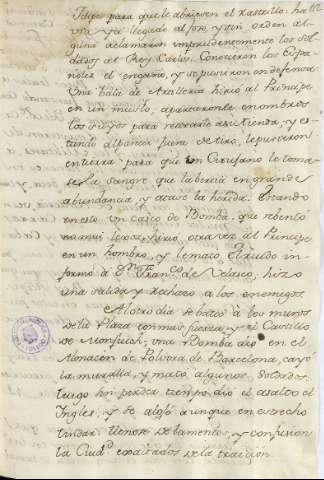 Felipe para que le abriesen el Rastrillo: halla
una ya llegado al fose, y sin orden al
guna aclamaron imprudentemente los sol
dados al Rey Carlos. Conocieron los Espa
ñoles el engaño, y se pusieron en defensa
Una bala de Artilleria hirió al Principe
en un muslo, apartaronle en ombros
los suyos para retirarle a su tienda, y es
tando al parecer fuera de tiro, le pusieron
en tierra para que un Cirujano le toma
se la sangre que la bertia en grande
abundancia, y atase la herida. Estando
en esto un casco de Bomba, que rebento
no mui lexos, hirió otra vez al Principe
en un hombro, y le mató. El ruido in
formó a Dn. Franco. de Velasco, hizo
una salida y rechazó a los enemigos
Al otro dia se batió a los muros
de la Plaza con mas fuerza, y el Castillo
de Monjuich; una Bomba dió en el
Almacen de Polvora de Barcelona, cayó
la muralla, y mató algunos Soldados,
luego sin perder tiempo dió el asalto el
Ingles, y se alojó aunque en estrecho
lindar. Llenose de lamentos, y confusion
la Ciud. de la traicion.